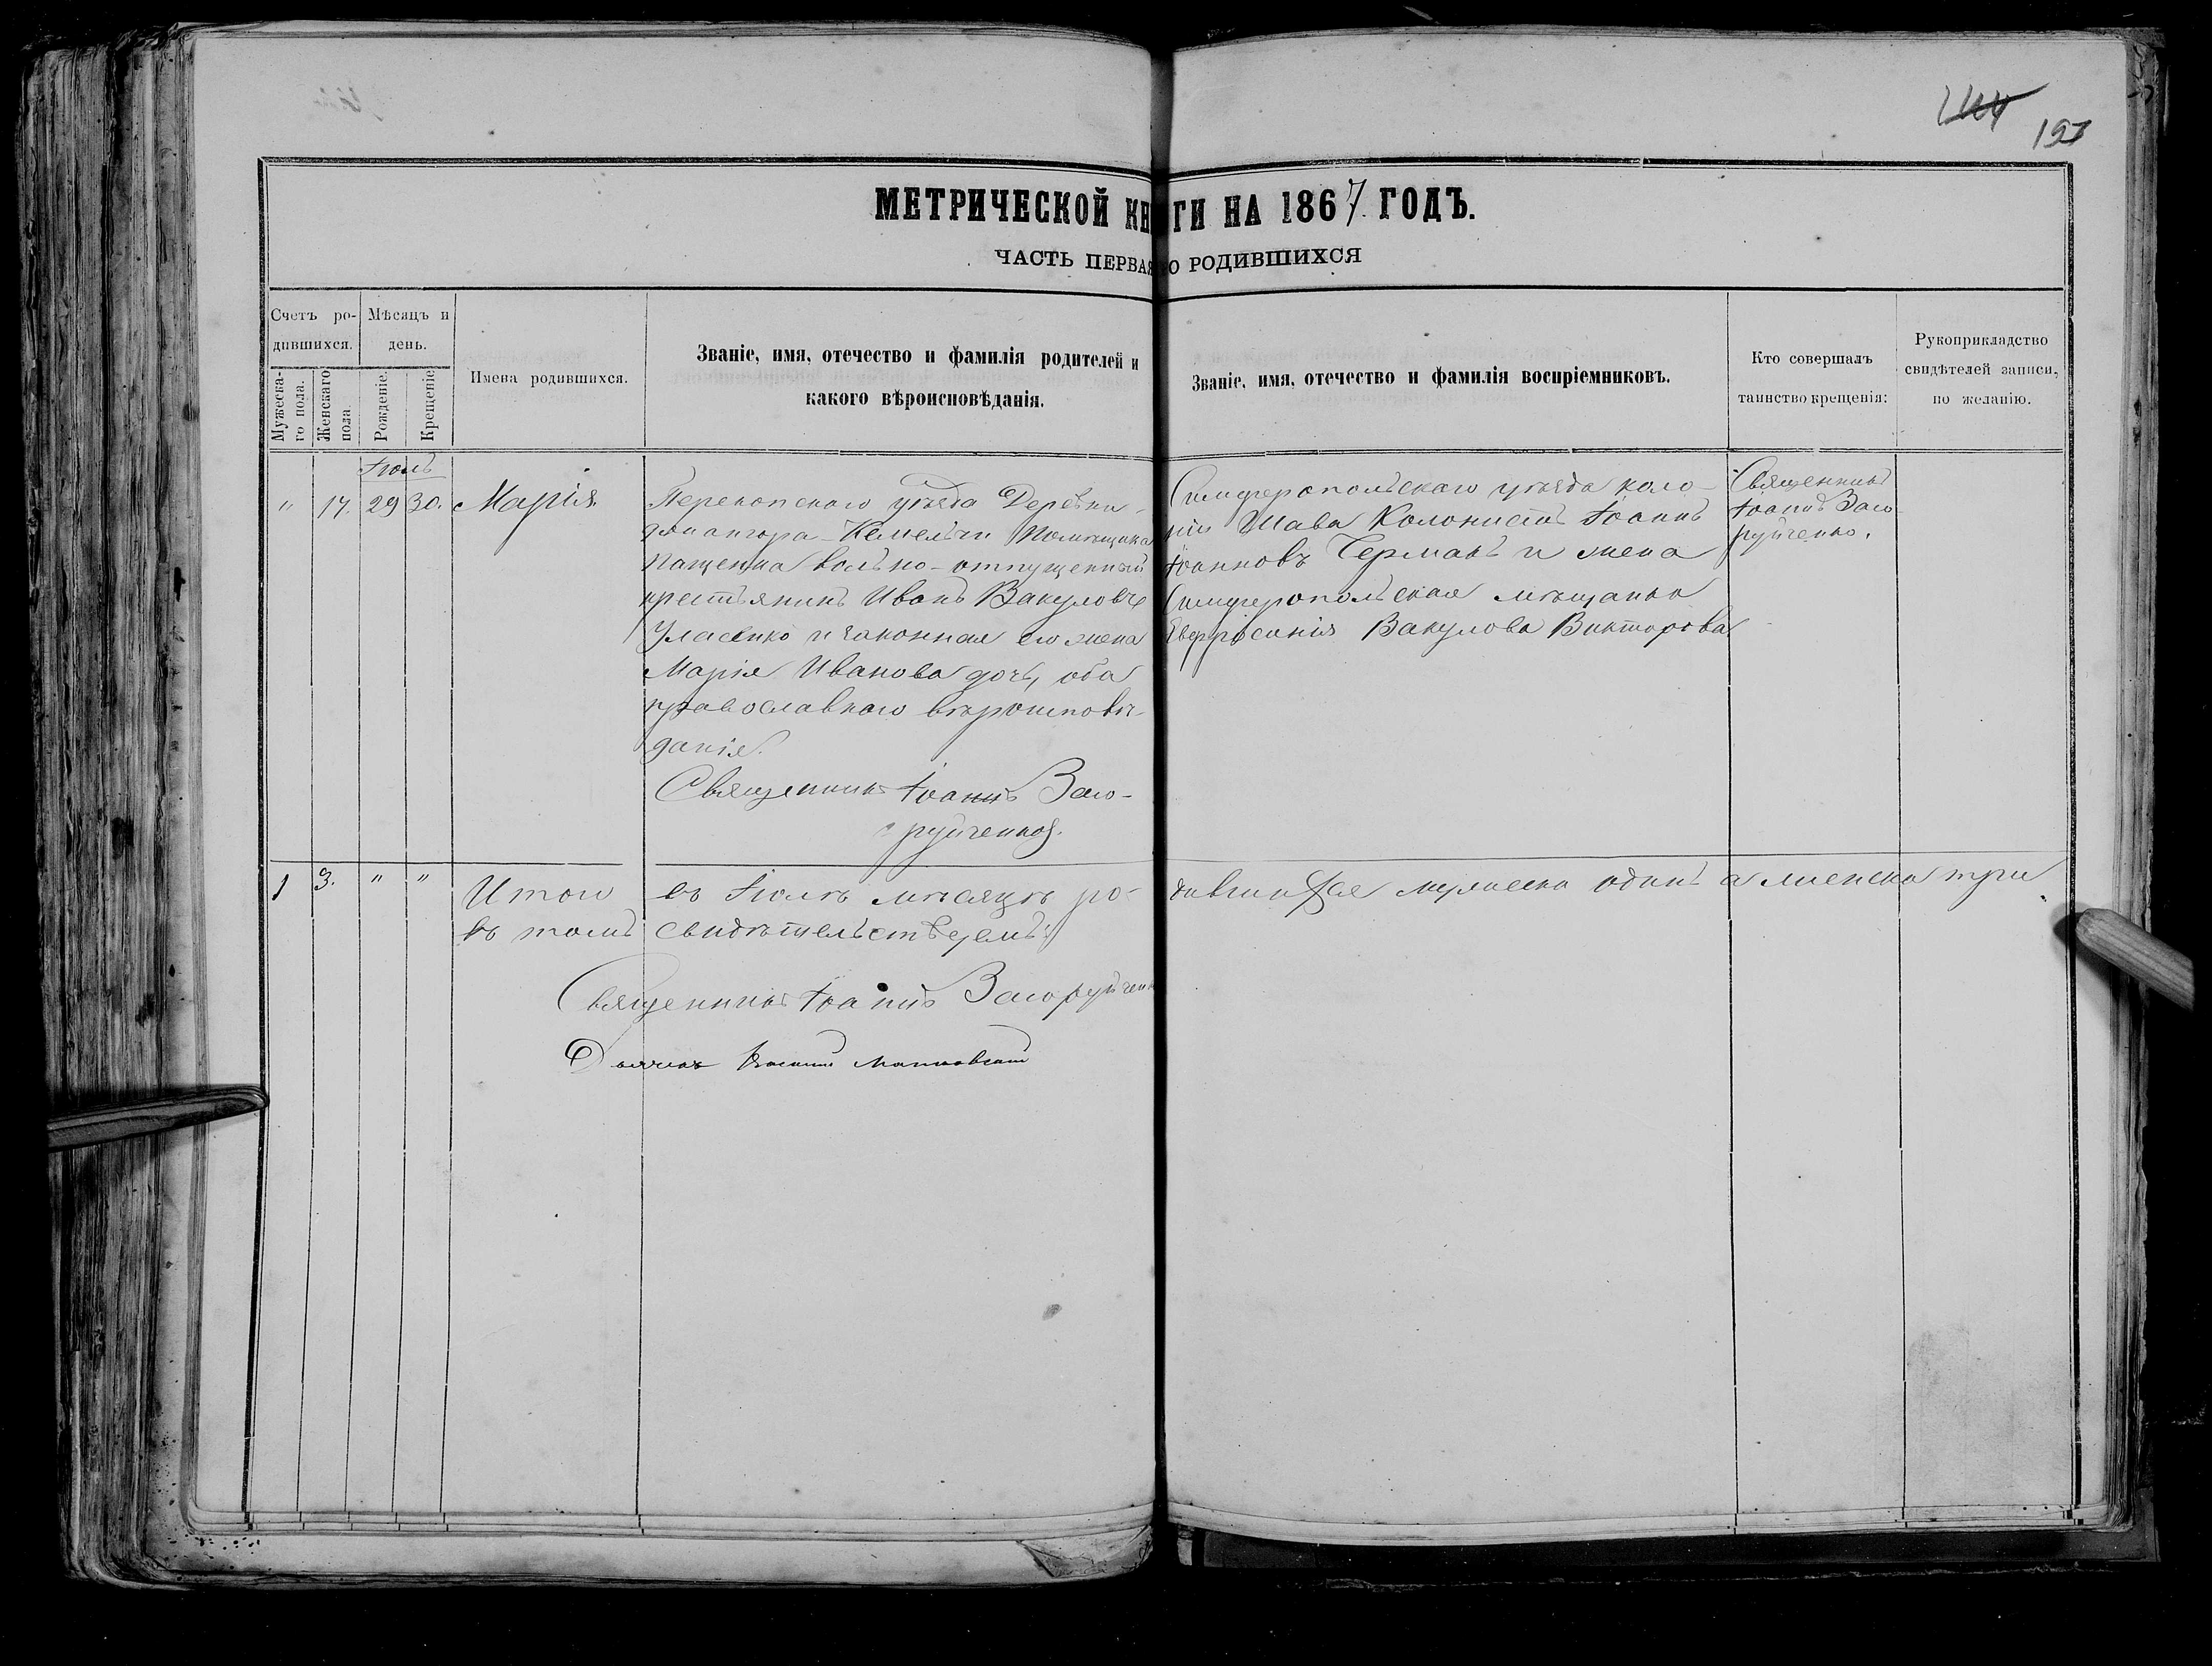 193
МЕТРИЧЕСКОЙ КНИГИ НА 1867 ГОДЪ.
ЧАСТЬ ПЕРВАЯ О РОДИВШИХСЯ
Счетъ ро-
дившихся.
Мѣсяцъ и
день.
Мужеска-
го пола.
Женскаго
пола.
Рожденіе.
Крещеніе.
Имена родившихся.
Званіе, имя, отечество и фамилія родителей и
какого вѣроисповѣданія.
Званіе, имя, отечество и фамилія воспріемниковъ.
Кто совершалъ
таинство крещенія:
Рукоприкладство
свидѣтелей записи,
по желанію.
Іюль
" 17. 29 30. Марія
Перекопскаго уѣзда Деревни
Кемельчи Помѣщика
Пащенка вольно-отпущенный
крестьянинъ Иванъ Вакуловъ
Уласенко и законная его жена
Марія Иванова дочь, оба
православнаго вѣроисповѣ-
данія.
Священникъ Іоаннъ Заго-
руйченко.
Симферопольскаго уѣзда коло-
ніи Колонистъ Іоаннъ
Іоанновъ Германъ и жена
Симферопольская мѣщанка
Евфросинія Вакулова Викторова
Священникъ
Іоаннъ Заго-
руйченко.
1 3. " " Итого въ Іюлѣ мѣсяцѣ ро-
дившихся мужеска одинъ а женска три
въ томъ свидѣтельствуемъ:
Священникъ Іоаннъ Загоруйченко
Дьячекъ